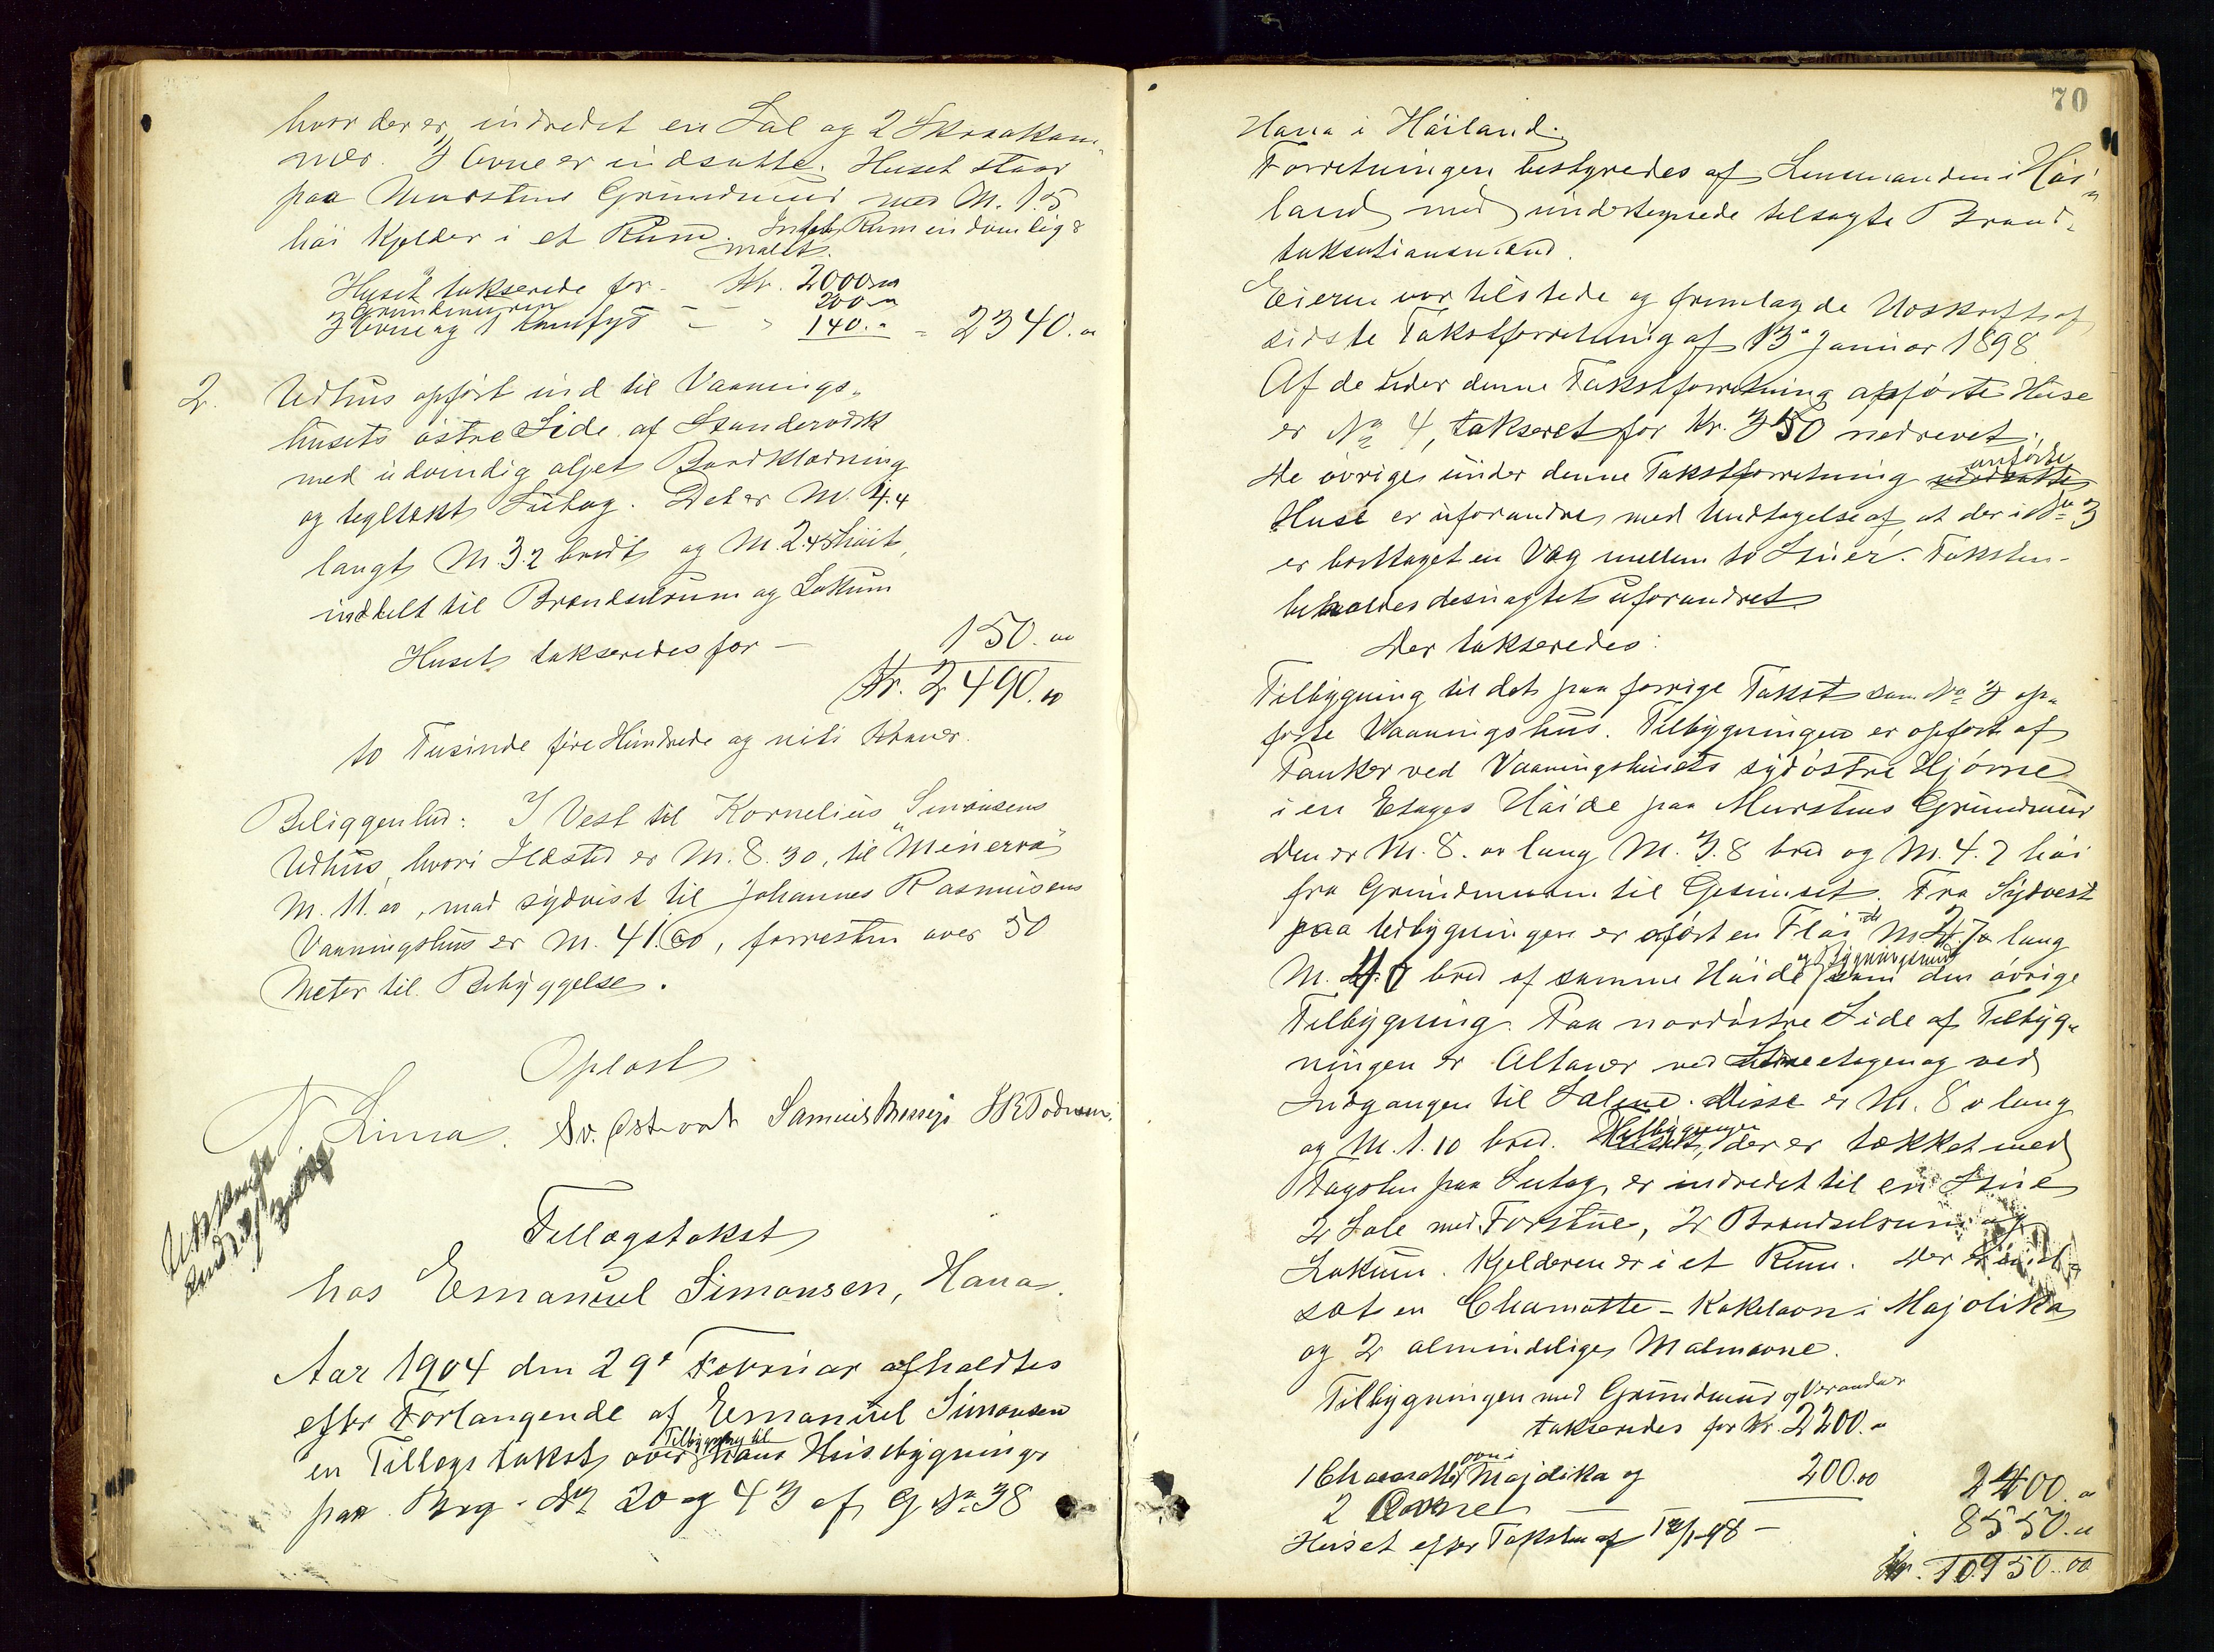 hvor der er indredet en Sal og 2 Skraakam-
mer. 3 Ovne er indsatte. Huset staar
paa Murstens Grundmur med M. 1.5
høi Kjelder i et Rum. Rum indvendig
malet.
Huset takserede for - Kr. 2000.00
og Grundmuren 200.00
3 Ovne og 1 Komfyr - " 140.00 = 2340.00
2. Udhus opført ind til Vaanings-
husets østre Side af Standerværk
med udvendig oljet Bordklædning
og tegltækt Sutag. Det er M. 4.4
langt M. 3.2 bredt og M. 2.45 høit,
inddelt til Brændselrum og Lokum
Huset takseredes for - 150.00
Kr. 2490.00
to Tusinde fire Hundrede og niti Kroner.
Beliggenhed: I Vest til Kornelius Simonsens
Udhus, hvori Ildsted er M. 8.30, til "Minerva"
M. 11.00, mod sydvest til Johannes Rasmusens
Vaaningshus er M. 41.60, forresten over 50
Meter til Bebyggelse.
Oplæst
N. Lima. Sv. Østravt
Tillægstakst
hos Emanuel Simonsen, Hana.
Aar 1904 den 29e Februar afholdtes
efter Forlangende af Emanuel Simonsen
Tilbygning til
en Tillægstakst over hans Husebygninger
paa Brg. No 20 og 43 af G No 38
70
Hana i Høiland.
Forretningen bestyredes af Lensmanden i Høi-
land med undertegnede tilsagte Brand-
taksationsmænd.
Eieren var tilstede og fremlagde Udskrift af
sidste Takstforretning af 13de Januar 1898
Af de under denne Takstforretning opførte Huse
er No 4, takseret for Kr. 350 nedrevet;
anførte
De øvrige under denne Takstforretning
Huse er uforandret med Undtagelse af, at der i No 3
er borttaget en Væg mellem to Stuer. Taksten
beholdes desuagtet uforandret
Der takseredes:
Tilbygning til det paa forrige Takst som No 3 op-
førte Vaaningshus. Tilbygningen er opført af
Planker ved Vaaningshusets sydøstre Hjørne
i en Etages Høide paa Murstens Grundmur
Den er M. 8.00 lang M. 3.8 bred og M. 4.7 høi
fra Grundmuren til Gesimset. Fra Sydvest
paa tilbygningen er opført en Fløi M. 2.70 lang
og Bygningsmaade
M. 4.0 bred af samme Høide som den øvrige
Tilbygning. Paa nordøstre Side af Tilbyg-
ningen er Altaner ved etagen og ved
Indgangen til Salene. Disse er M. 8.0 lang
Tilbygningen
og M. 1.10 bred. Huset, der er tækket med
Tagsten paa Sutag, er indredet til en Stue
2 Sale med Forstue, 2 Brændselrum og
Lokum. Kjelderen er i et Rum. Der er ind-
sat en Chamotte-Kakelovn i Majolika
og 2 almindelige Malmovne.
Tilbygningen med Grundmur og Verandaer
takseredes for Kr. 2200.00
ovn i
1 Chamotte Majolika og 200.00 2400.00
2 Ovne
Huset efter Taksten af 13/1-98 - 8550.00
Kr. 10950.00